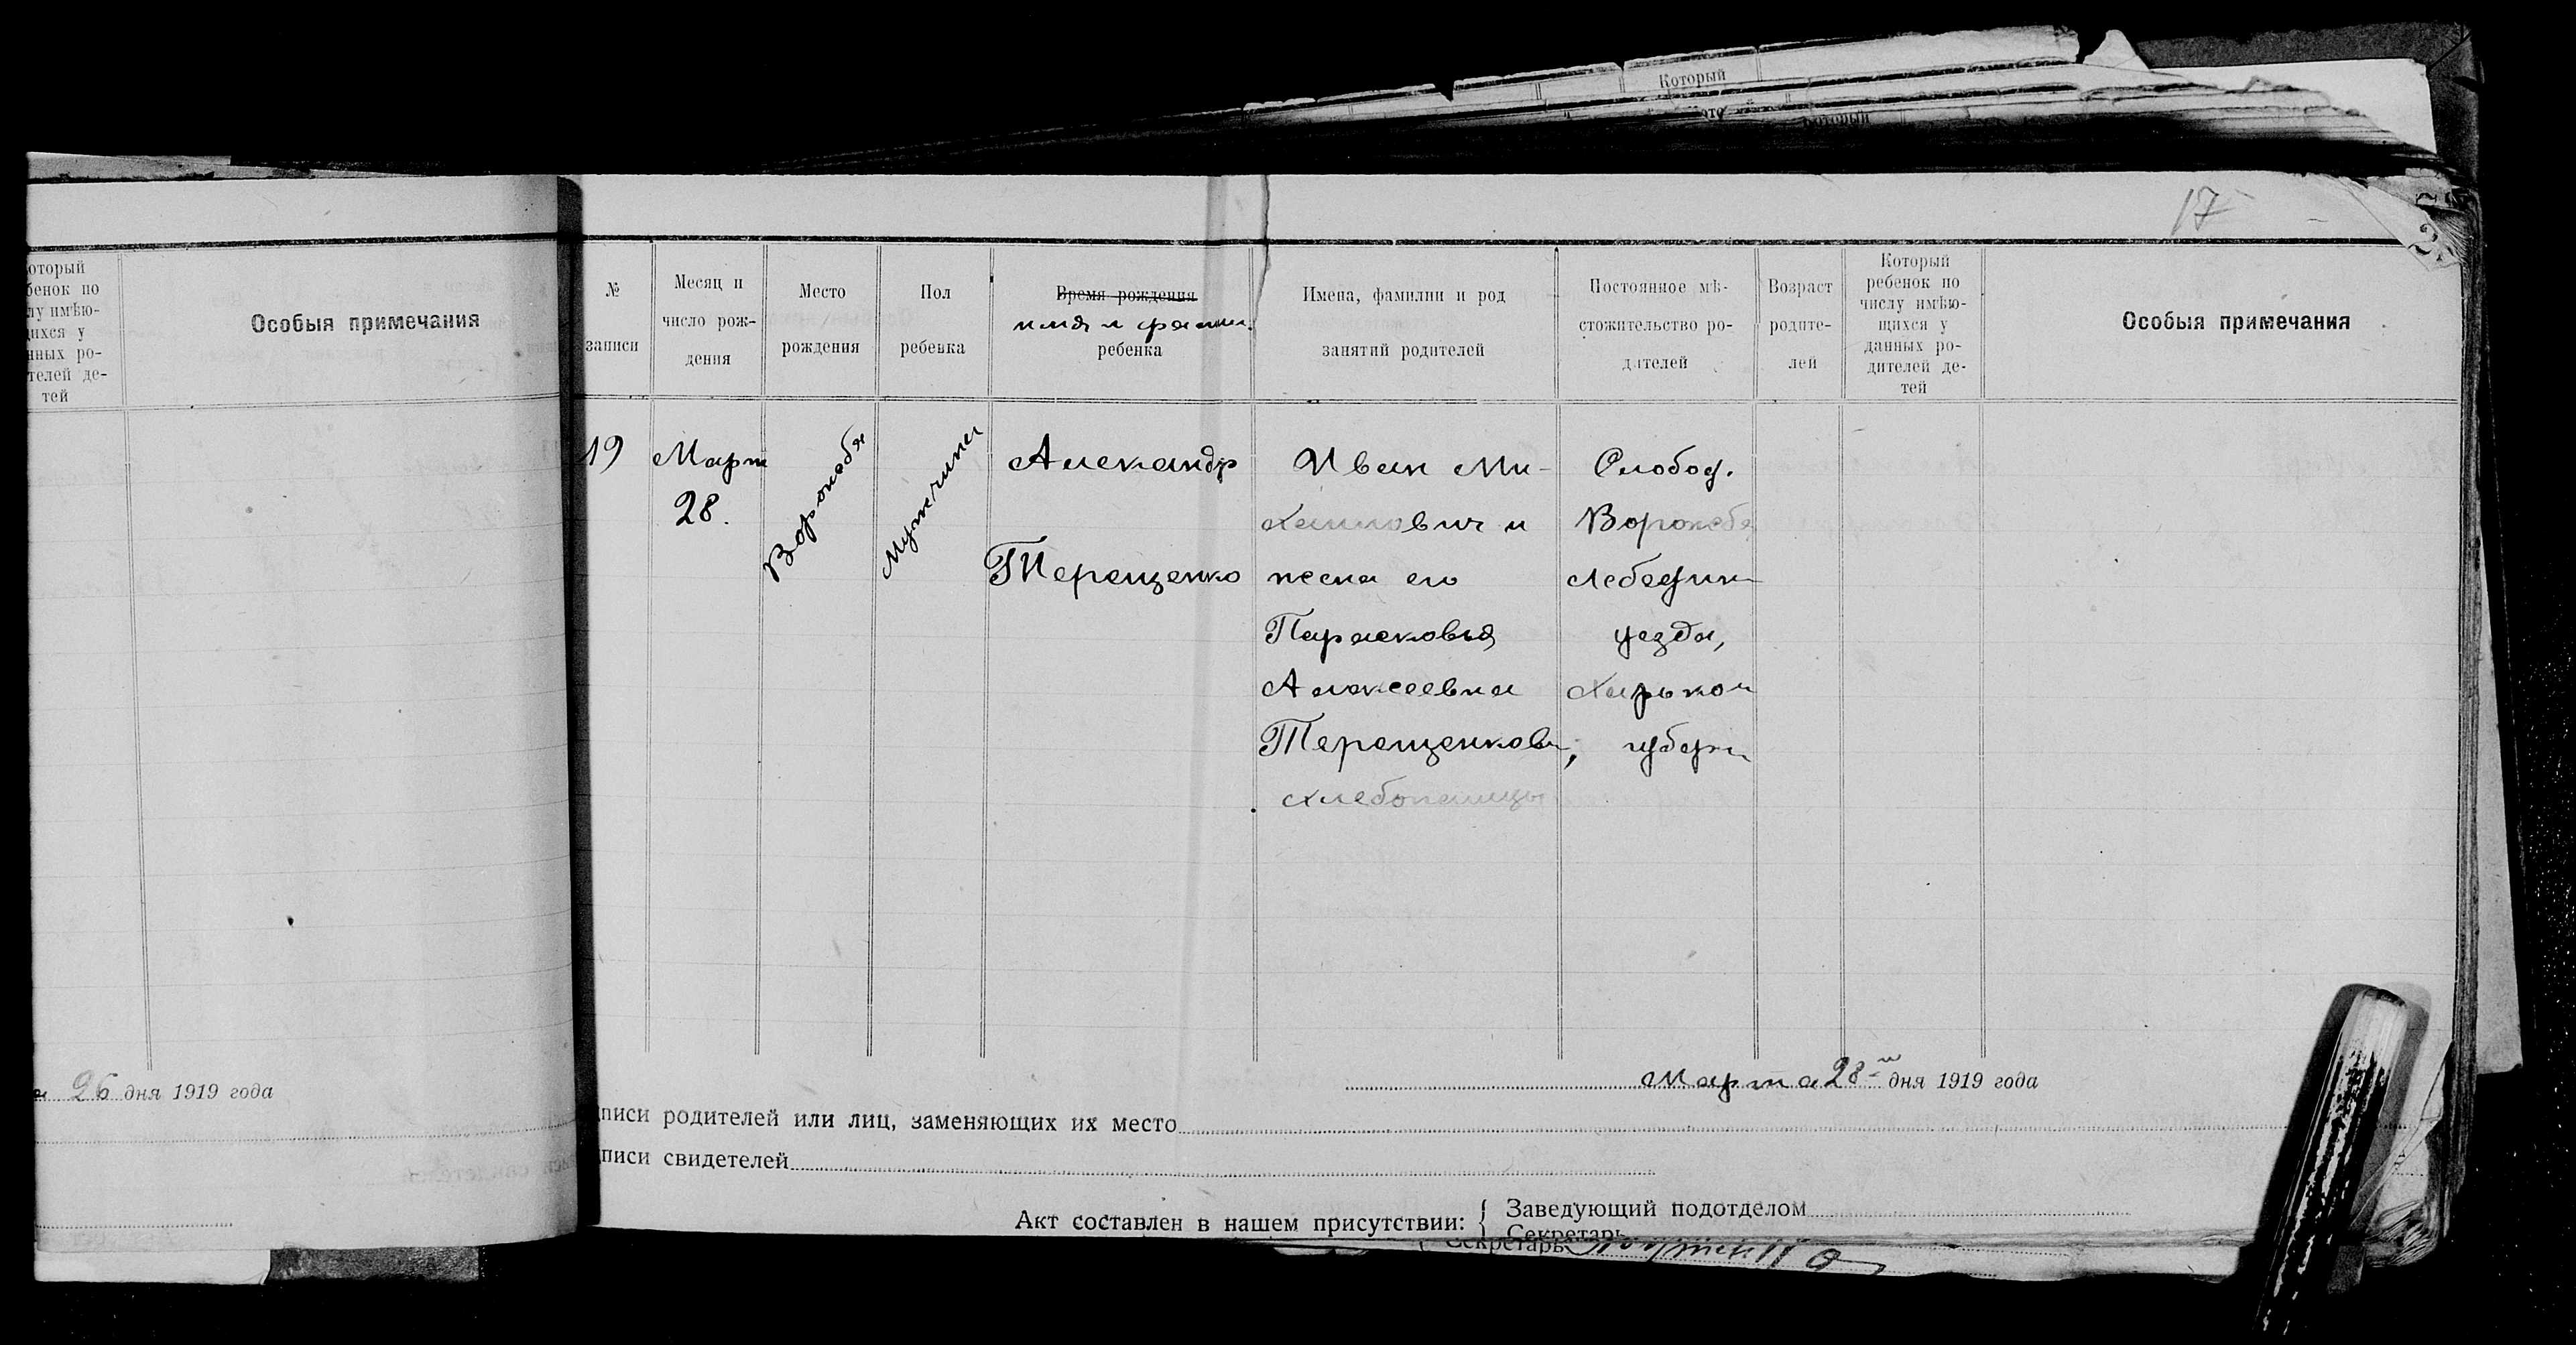 Который
который
17
оторый
бенок по
лу имѣю-
щихся у
нных ро-
телей де-
тей
Особыя примечания
№
записи
Месяц и
число рож-
дения
Место
рождения
Пол
ребенка
Время рождения
имя и фамил.
ребенка
Имена, фамилии и род
занятий родителей
Постоянное мѣ-
стожительство ро-
дителей
Возраст
родите-
лей
Который
ребенок по
числу имѣю-
щихся у
данных ро-
дителей де-
тей
Особыя примечания
19
Март
28.
Ворожба
Мужчина
Александр
Терещенко
Иван Ми-
хаилович и
жена его
Парасковья
Алексеевна
Терещенковы,
хлебопашцы
Слобод.
Ворожба
Лебедин
уезда,
Харьков
губерн
26 дня 1919 года
Марта 28 го дня 1919 года
писи родителей или лиц, заменяющих их место
писи свидетелей
Акт составлен в нашем присутствии:
Заведующий подотделом
Секретарь
Секретарь